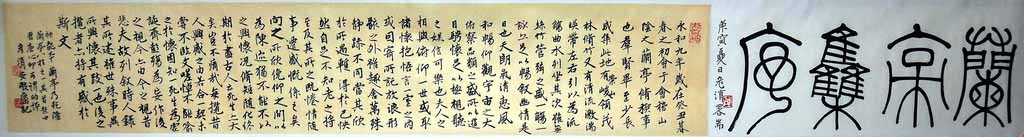 蘭亭集序
庚寅夏日
永和九年歲在癸丑暮
春之初會于會稽山
陰之蘭亭脩稧事
也羣賢畢至少長
咸集此地有峻領茂
林脩竹又有清流激湍
映帶左右引以為流
觴曲水列坐其次雖無
絲竹管弦之盛一觴一
詠亦足以暢叙幽情是
日也天朗氣清惠風
和暢仰觀宇宙之大
俯察品類之盛所以遊
目騁懷足以極視聽
之娛信可樂也夫人之
相與俯仰一世或取
諸懷抱悟言一室之內
或因寄所託放浪形
骸之外雖趣舍萬殊
靜躁不同當其欣
於所遇蹔得於己快
然自足不知老之將
至及其所之既惓情隨
事遷感慨係之矣向
之所欣俛仰之間以
為陳迹猶不能不以之
興懷況脩短隨化終
期於盡古人云死生亦大
矣豈不痛哉每攬昔
人興感之由若合一契未
嘗不臨文嗟悼不能喻
之於懷固知一死生為虛
誕齊彭殤為妄作後
之視今亦由今之視昔
悲夫故列叙時人錄
其所述雖世殊事異
所以興懷其致一也後之
攬者亦將有感於
斯文